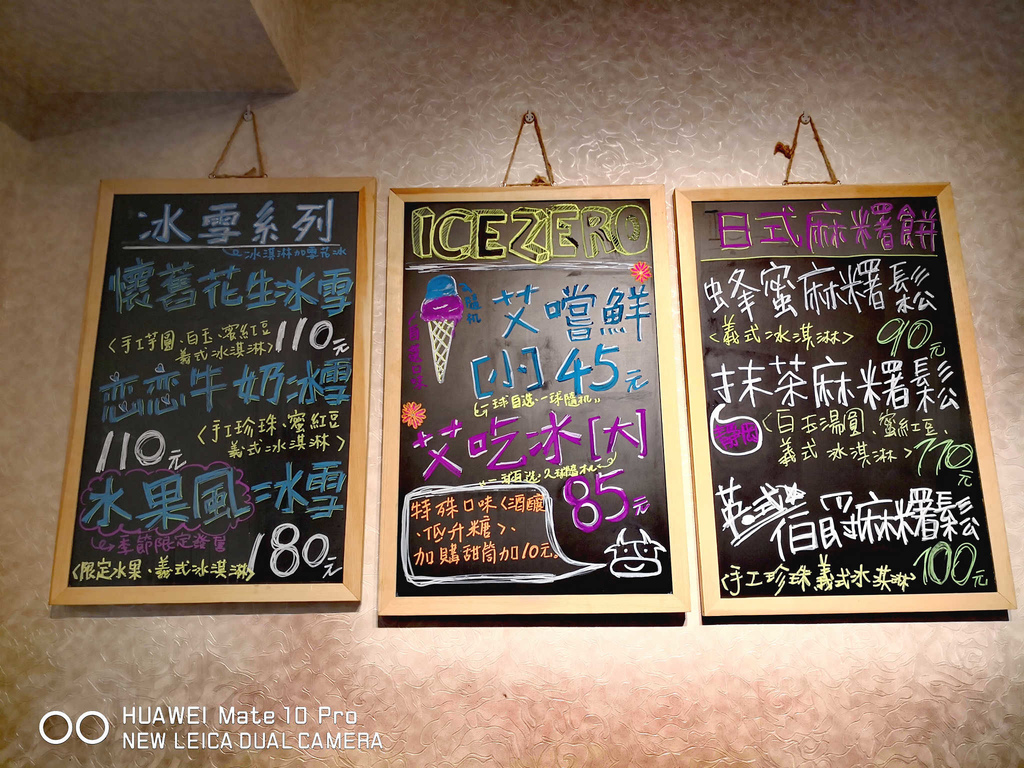 冰雪系列
冰淇淋加雪花冰
懷舊花生冰雪
<手工芋圓、白玉、蜜紅豆
義式冰淇淋>
110元
戀戀牛奶冰雪
<手工珍珠、蜜紅豆
義式冰淇淋>
110元
水果風冰雪
季節限定
180元
<限定水果、義式冰淇淋>
ICEZERO
艾嚐鮮
[小] 45元
一球自選、一球隨机
艾吃冰[大]
85元
特殊口味<酒釀
、低升糖>、
加購甜筒加10元。
日式麻糬餅
蜂蜜麻糬鬆
<義式冰淇淋> 90元
抹茶麻糬鬆
<白玉湯圓、蜜紅豆、
義式冰淇淋> 110元
英式伯爵麻糬鬆
<手工珍珠義式冰淇淋> 100元
HUAWEI Mate 10 Pro
NEW LEICA DUAL CAMERA